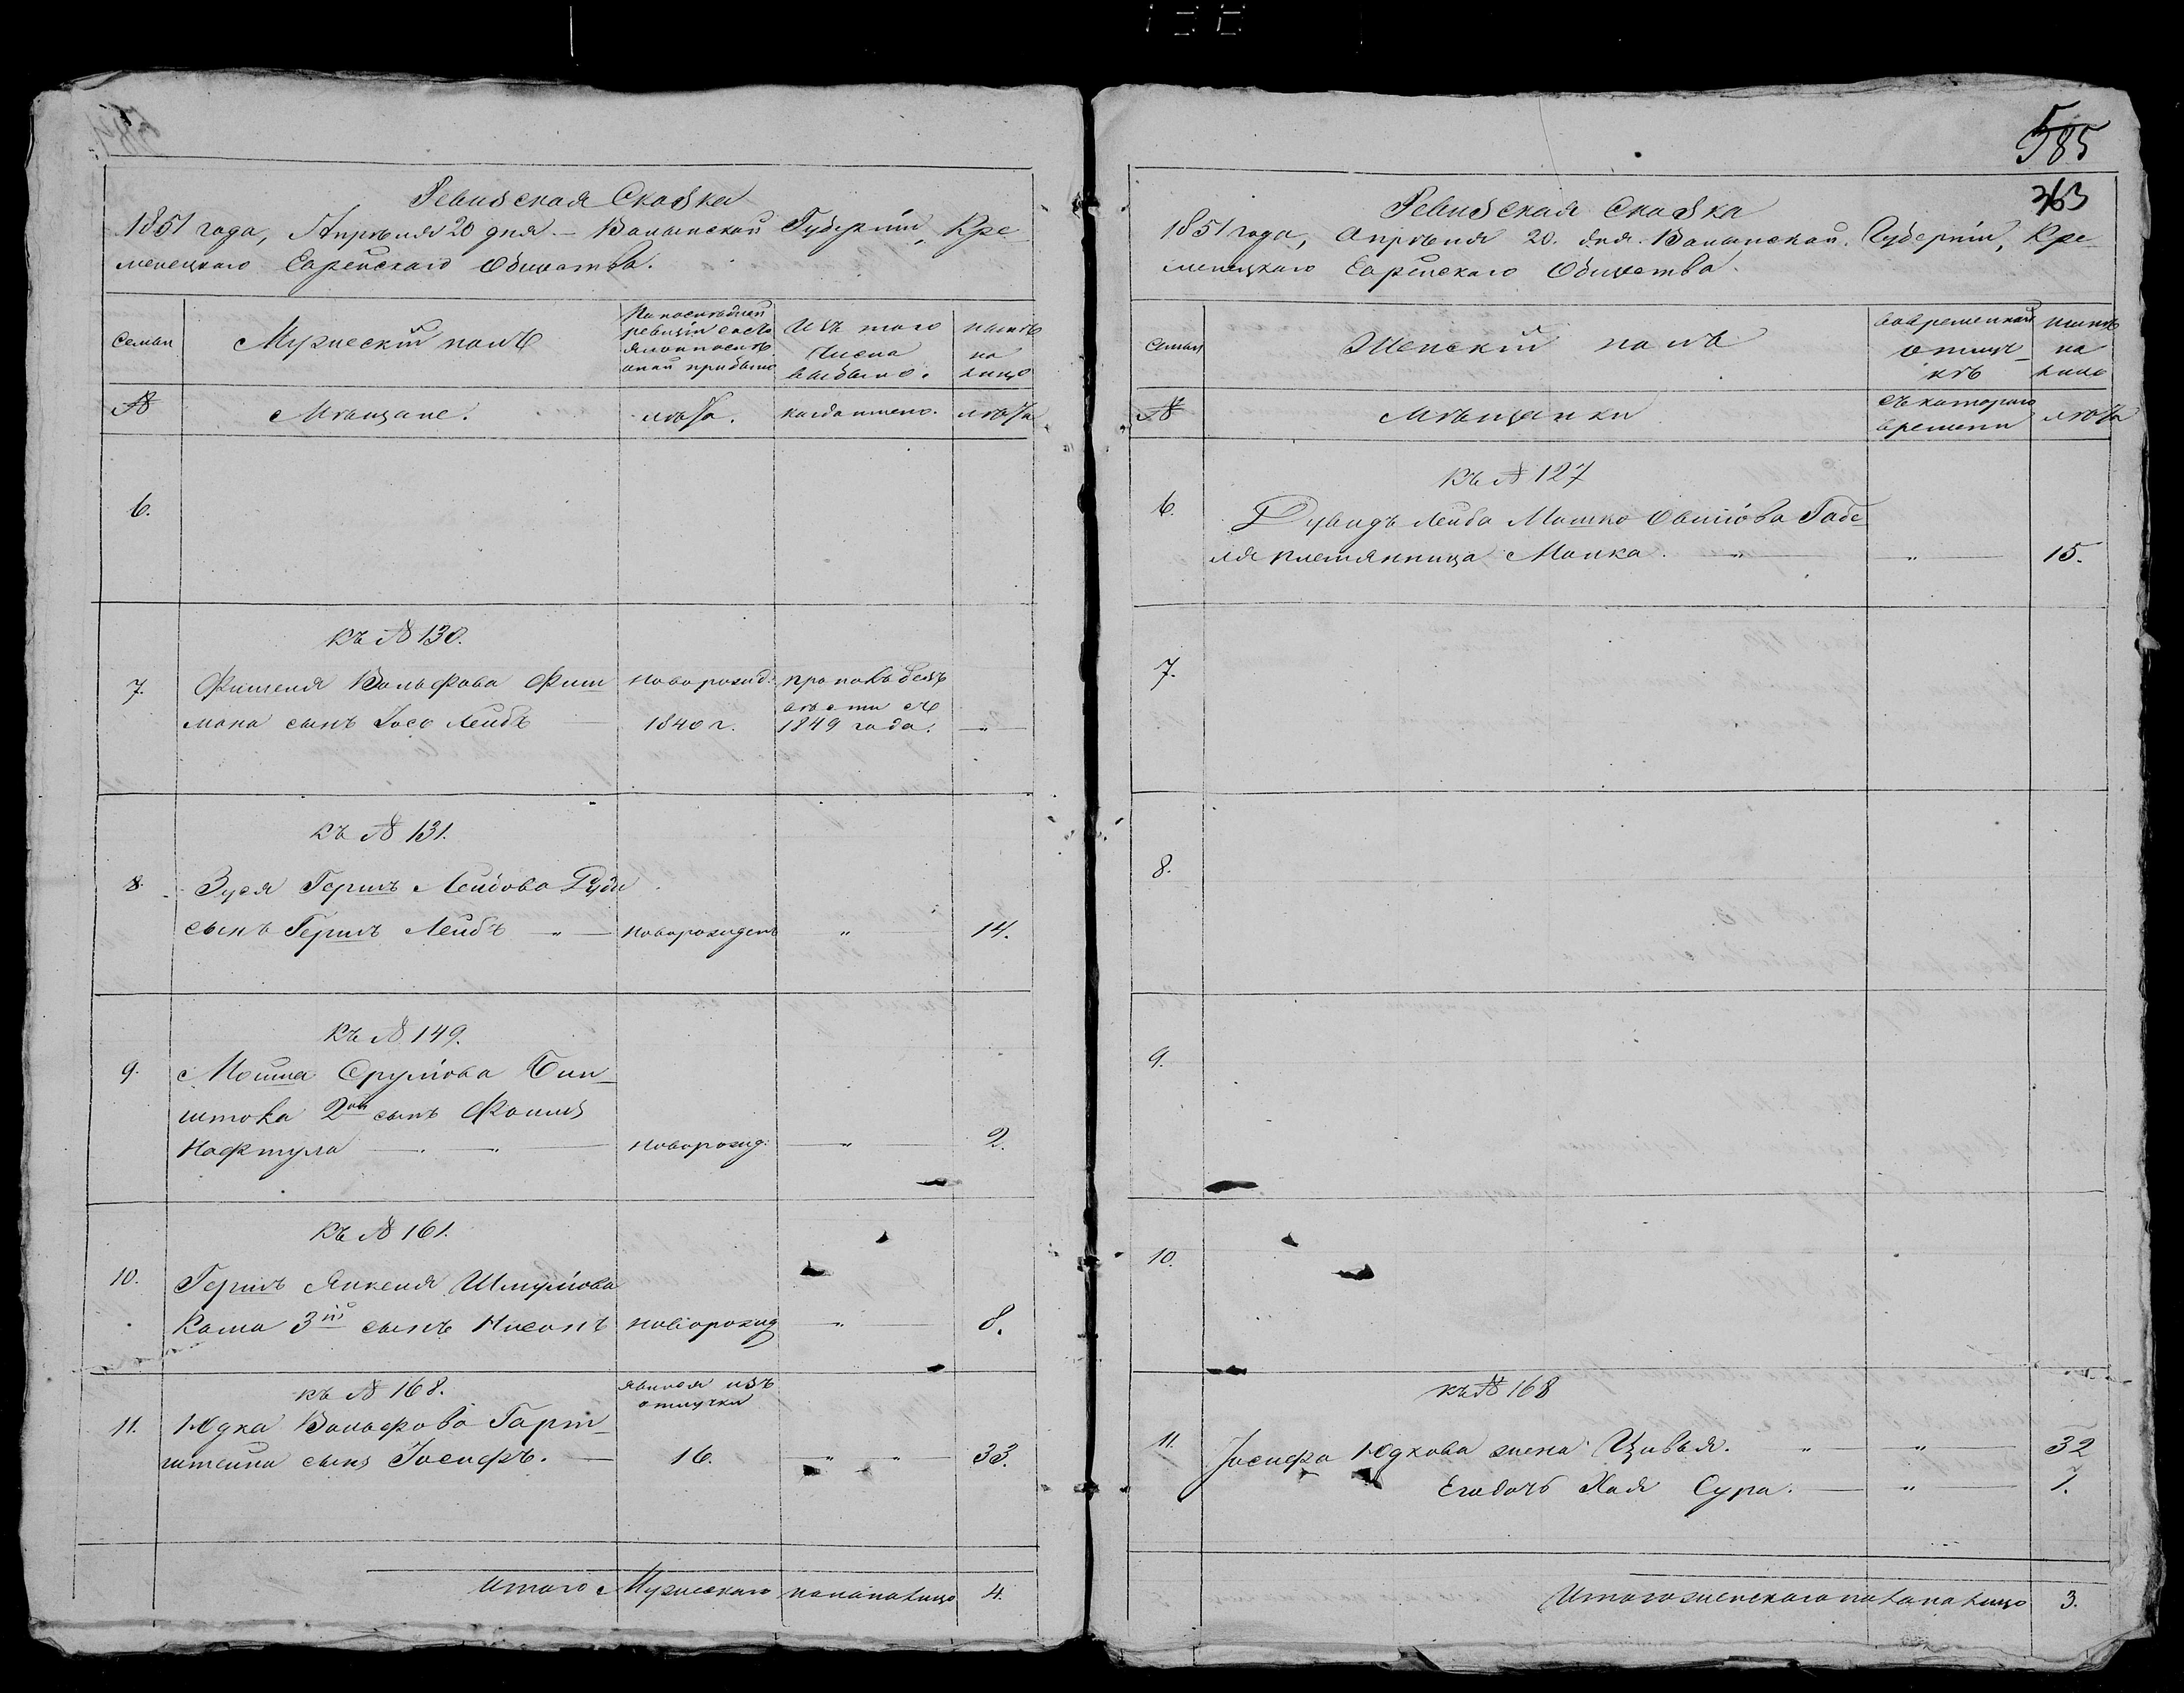 Ревизская Сказка
1851 года, Апреля 20 дня. – Волынской Губерніи, Кре-
менецкаго Еврейскаго Общества.
семьи
Мужескій полъ
По последней
ревизіи состо
яло и после
оной прибыло
Изъ того
числа
выбыло.
ныне
на
лицо
№
Мѣщане.
лѣта.
когда имено.
лѣта
6.
Къ № 130.
7.
Фишеля Вольфова Фиш
мана сынъ Іось Лейбъ
новорожд:
1840 г.
пропалъ безъ
вѣсти съ
1849 года.
"
Къ № 131.
8.
Зуся Гершъ Лейбова Руди
сынъ Гершъ Лейбъ — " — новорожденъ " 14.
Къ № 149.
9.
Мошка Сруліова Бин-
штока 2ой сынъ Фоишъ
Нафтула — " — новорожд: — " — 2.
Къ № 161.
10.
Гершъ Янкеля Шмуліова
Кама 3ій сынъ Нисонъ новорожд " 8.
Къ № 168.
явился изъ
отлучки
11.
Юдка Вольфова Гарт-
штейна сынъ Іосифъ. — 16. — " — " — 33.
Итого Мужескаго пола на лицо 4.
585
363
Ревизская Сказка
1851 года, Апрѣля 20. дня. Волынской. Губерніи, Кре-
менецкаго Еврейскаго Общества.
семьи
Женскій полъ
во временной
отлуч-
кѣ
ныне
на
лицо
№
Мѣщанки
съ котораго
времени
лѣта
Къ № 127
6.
Дувидъ Лейба Мошко Овшіова Габе
ля племянница Малка. — " — " — 15.
7.
8.
9.
10.
Къ № 168
11.
Іосифа Юдкова жена Цивья. " — " — 32
Его дочь Хая Сура. — " — 7.
Итого женскаго пола на лицо 3.